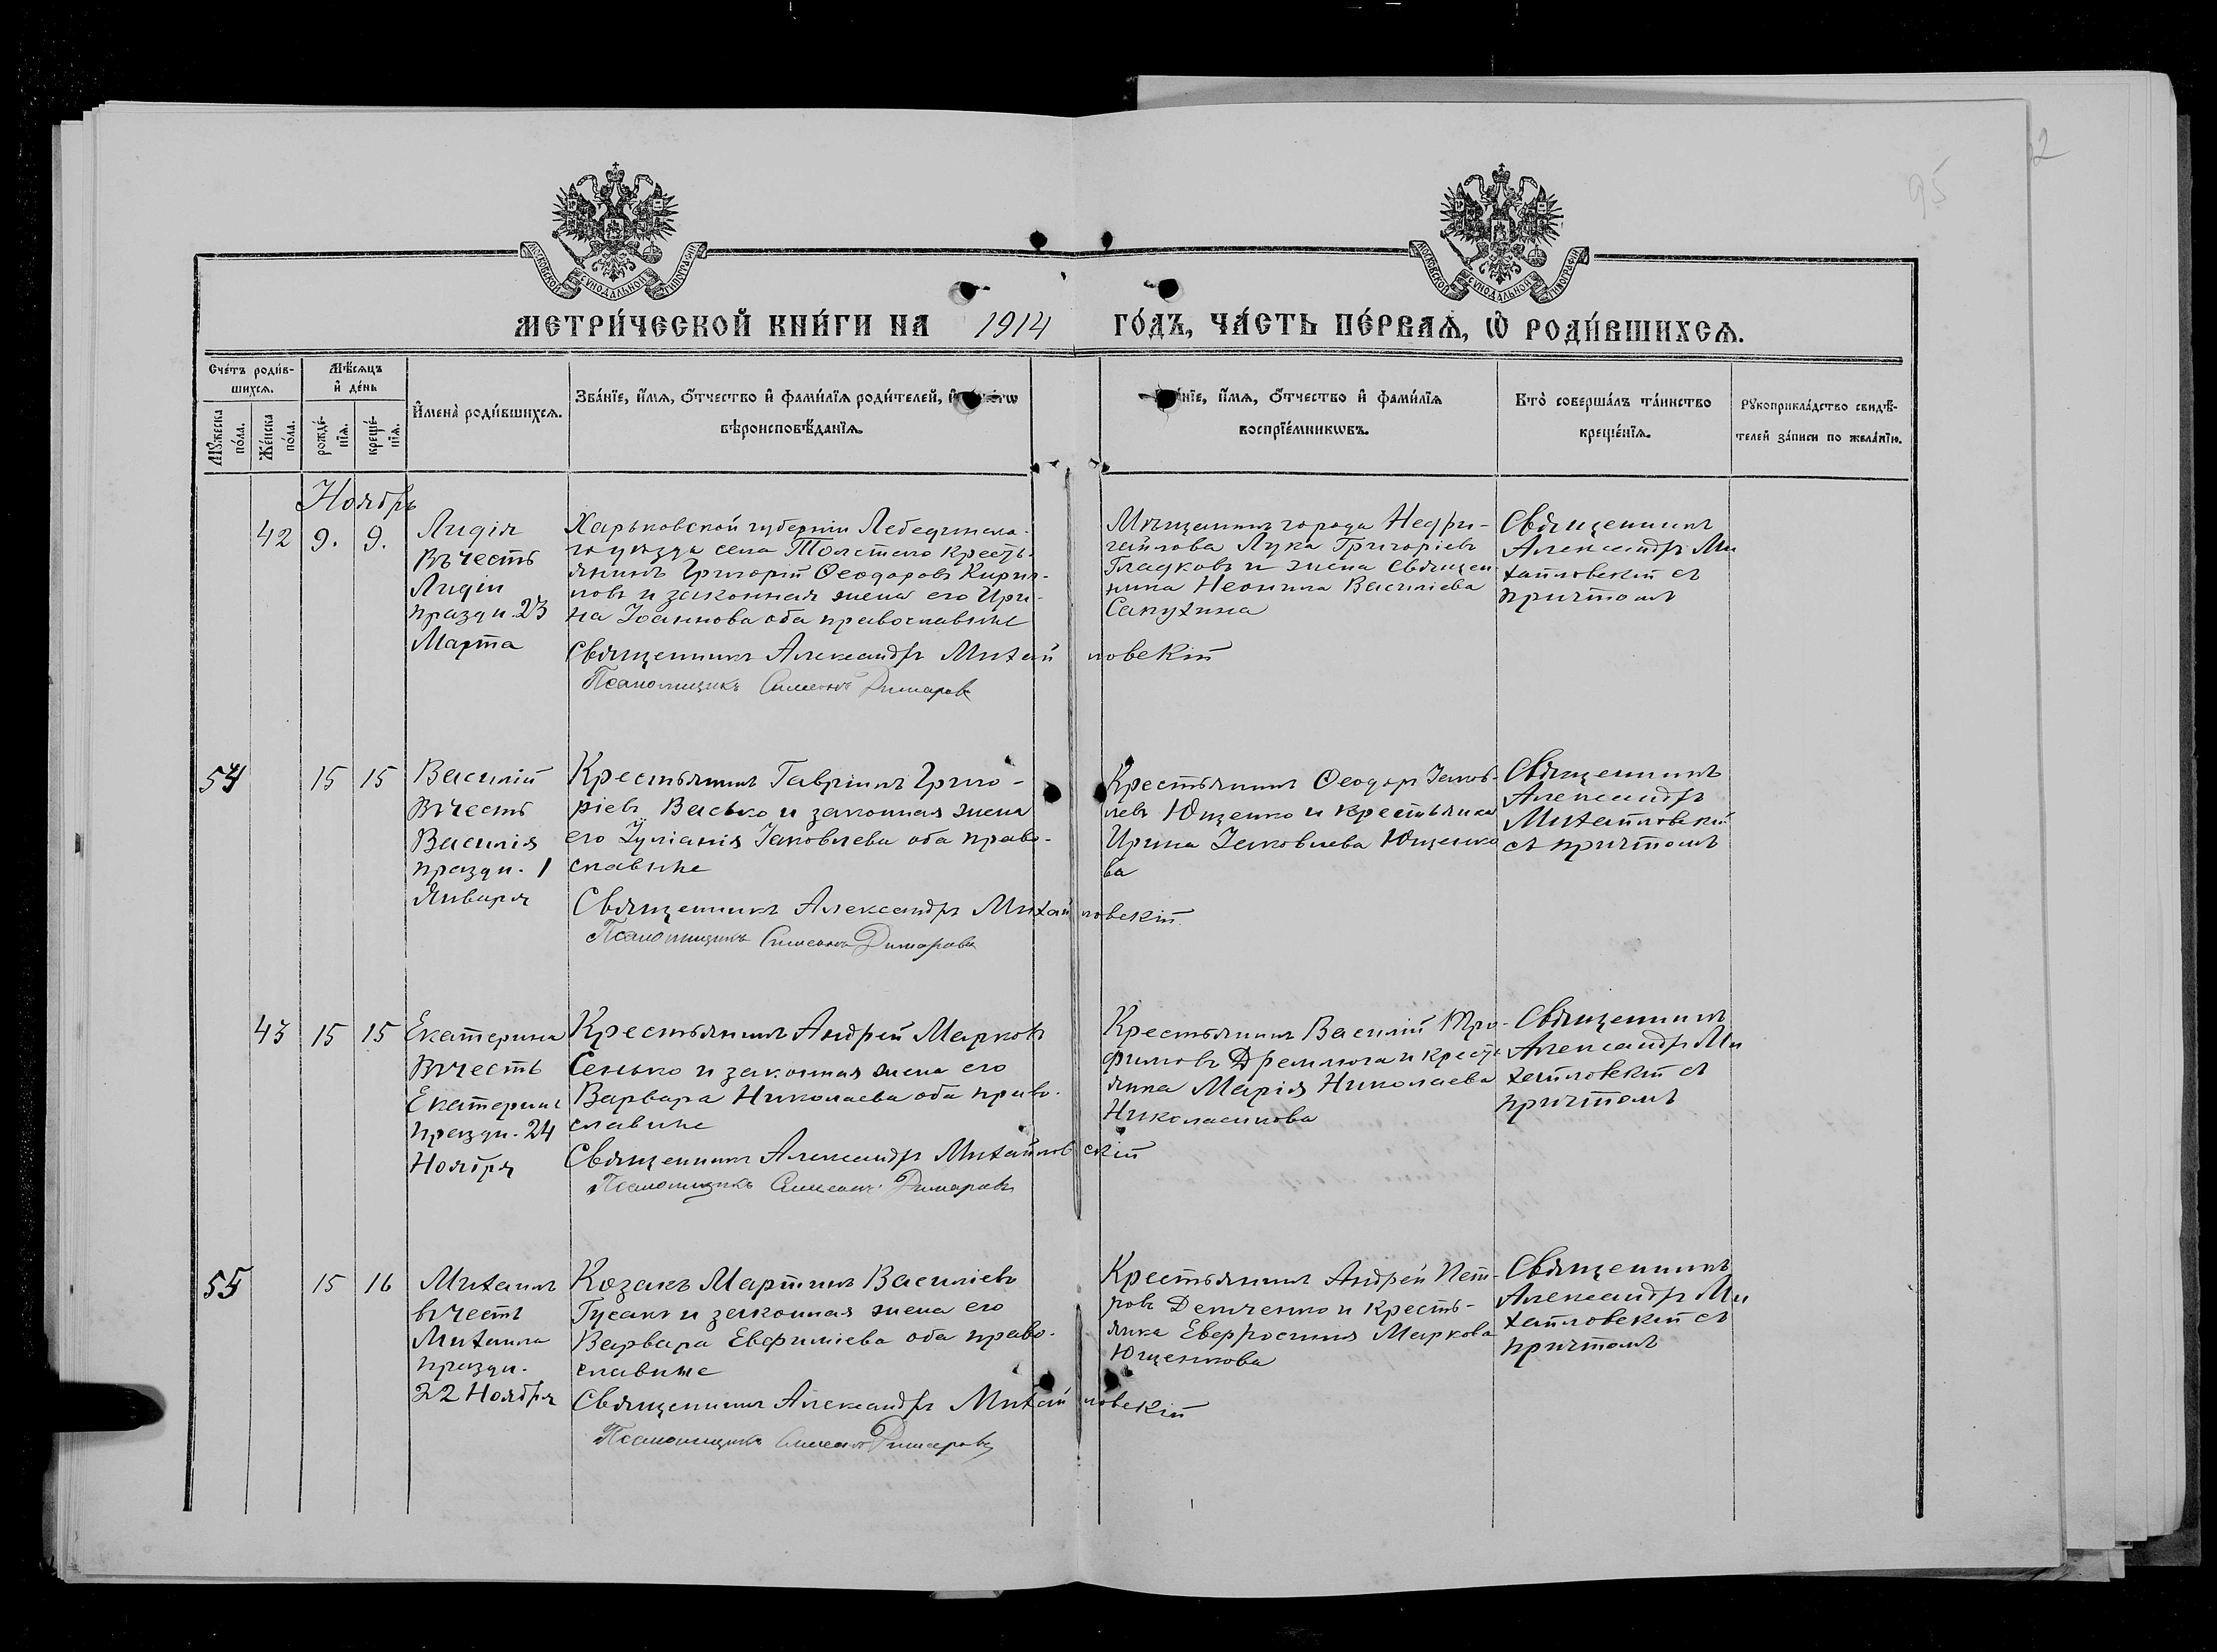 95
2
МЕТРИ́ЧЕСКОЙ КНИ́ГИ НА 1914 ГО́ДЪ, ЧА́СТЬ ПЕ́РВАѦ, Ѽ РОДИ́ВШИХСѦ.
Сче́тъ роди́в-
шихсѧ.
Мѣ́сѧцъ
и҆ де́нь
Мꙋ́жеска
по́ла.
Же́нска
по́ла.
рожде́-
нїѧ.
креще́-
нїѧ.
И҆мена̀ роди́вшихсѧ.
Зва́нїе, и҆́мѧ, ѻ҆́тчество и҆ фами́лїѧ роди́телей, и҆
вѣроисповѣ́данїѧ.
и҆́мѧ, ѻ҆́тчество и҆ фами́лїѧ
воспрїе́мникѡвъ.
Кто̀ соверша́лъ та́инство
креще́нїѧ.
Рꙋкоприкла́дство свидѣ́-
телей за́писи по жела́нїю.
Ноябрь
42 9. 9.
Лидія
Въ честь
Лидіи
праздн. 23
Марта
Харьковской губерніи Лебединска-
го уѣзда села Толстого кресть-
янинъ Григорій Ѳеодоровъ Кирил-
ловъ и законная жена его Ири-
на Іоаннова оба православные
Священникъ Александръ Михайловскій
Псаломщикъ Симеонъ Димаровъ
Мѣщанинъ города Недри-
гайлова Лука Григоріевъ
Гладковъ и жена священ-
ника Неонила Василіева
Сапухина
Священникъ
Александръ Ми
хайловскій съ
причтомъ
54 15 15
Василій
Въ честь
Василія
праздн. 1
Января
Крестьянинъ Гавріилъ Григо-
ріевъ Васько и законная жена
его Іуліанія Іаковлева оба право-
славные
Священникъ Александръ Михайловскій
Псаломщикъ Симеонъ Димаровъ
Крестьянинъ Ѳеодоръ Іаков-
левъ Ющенко и крестьянка
Ирина Іаковлева Ющенко
ва
Священникъ
Александръ
Михайловскій
съ причтомъ
43 15 15
Екатерина
Въ честь
Екатерины
праздн. 24
Ноября
Крестьянинъ Андрей Марковъ
Сенько и законная жена его
Варвара Николаева оба право-
славные
Священникъ Александръ Михайловскій
Псаломщикъ Симеонъ Димаровъ
Крестьянинъ Василій Тро-
фимовъ Дремлюга и кресть
янка Марія Николаева
Священникъ
Александръ Ми
хайловскій съ
причтомъ
55 15 16
Михаилъ
въ честь
Михаила
праздн.
22 Ноября
Козакъ Мартинъ Василіевъ
Гусакъ и законная жена его
Варвара Евфиміева оба право-
славные
Священникъ Александръ Михайловскій
Псаломщикъ Симеонъ Димаровъ
Крестьянинъ Андрей Пет-
ровъ и кресть-
янка Евфросинія Маркова
Ющенкова
Священникъ
Александръ Ми
хайловскій съ
причтомъ